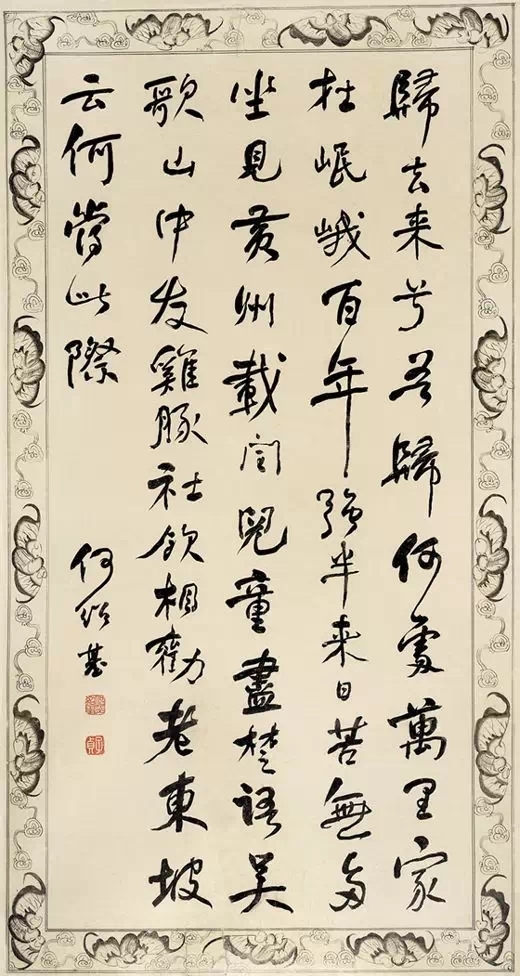 歸去来兮吾歸何處萬里家
在岷峨百年強半来日苦無多
坐見黄州載閏兒童盡楚語吴
歌山中友雞豚社飲相勸老東坡
云何當此際
何紹基
子貞